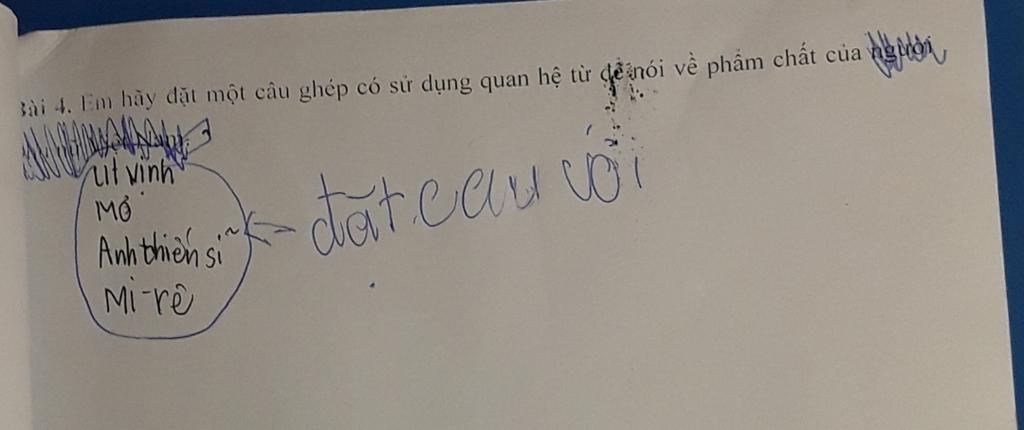 Bài 4. Em hãy đặt một câu ghép có sử dụng quan hệ từ để nói về phẩm chất của người
út vịnh
Mơ
Anh thiến sĩ
Mi-rê
đặt câu với